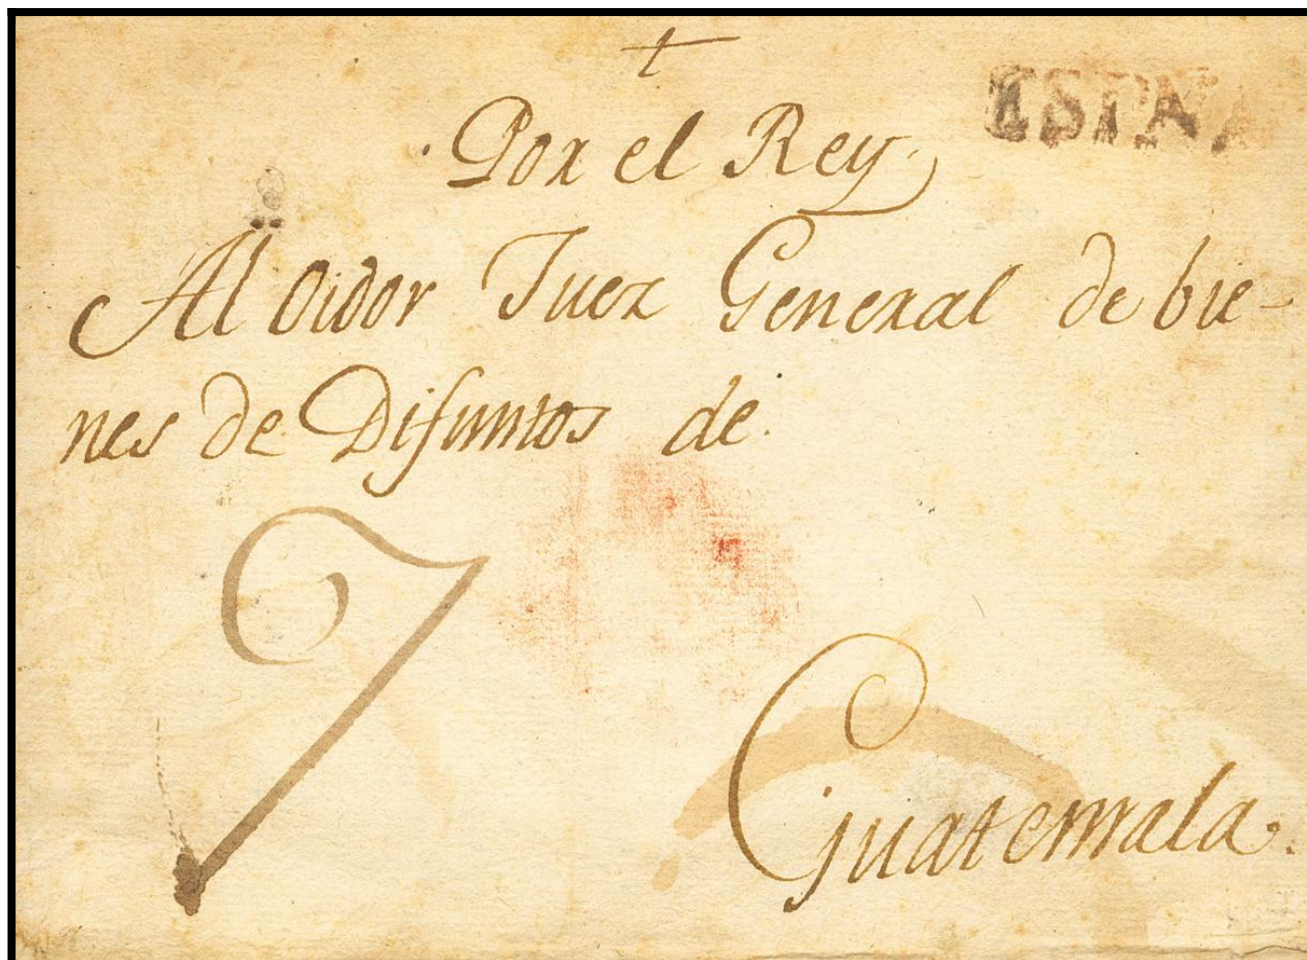 †
Por el Rey
ESPAÑA
Al Oidor Juez General de bie-
nes de Difuntos de
7
Guatemala.